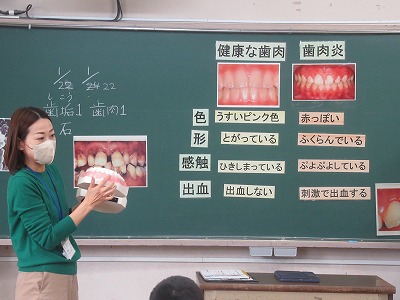 1/22 1/24 22
しこう
歯垢1 歯肉1
石
健康な歯肉 歯肉炎
色 うすいピンク色 赤っぽい
形 とがっている ふくらんでいる
感触 ひきしまっている ぷよぷよしている
出血 出血しない 刺激で出血する